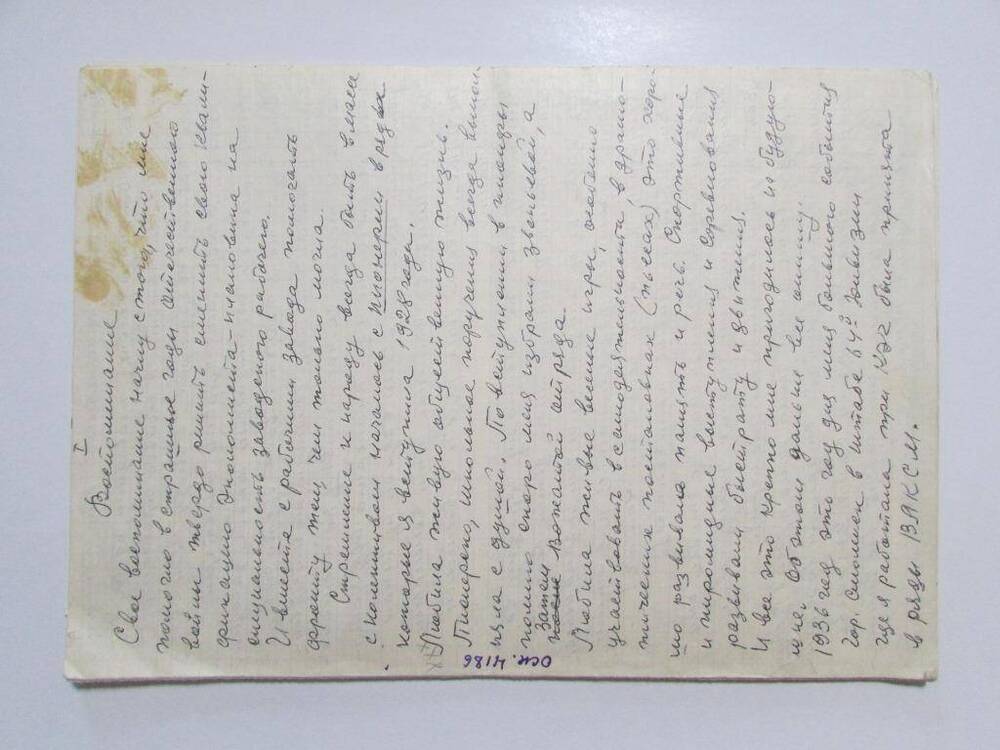 I
Воспоминание
Свое воспоминание начну с того, что мне
помогло в страшные годы отечественной
войны твердо решить сменить свою квали-
фикацию экономиста-плановика на
специальность заводского рабочего.
И вместе с рабочими завода помогать
фронту тем, чем только могла.
Стремление к народу всегда быть в массе
с колективом началось с пионерии в рядах
которые я вступила 1928 году.
Любила живую общественную жизнь.
Пионерско, школьное поручения всегда выпол-
няла с душой. По вступлении в пионеры
помню скоро меня избрали звеньевой, а
затем
после вожатой отряда.
Любила живые веселые игры, особенно
участвовать в самодеятельности, в драма-
тических постановках (пьесах) это хоро-
шо развивало память и речь. Спортивные
и пирамидные выступления и соревнования
развивали быстрату и движения.
И все это крепко мне пригодилось на будую-
щие. Об этом дальше все опишу.
1936 год это год для меня большого события
Гор. Смоленск в штабе 64й Дивизии
где я работала при КЭЧ была принята
в ряды ВЛКСМ.
осн. 4186